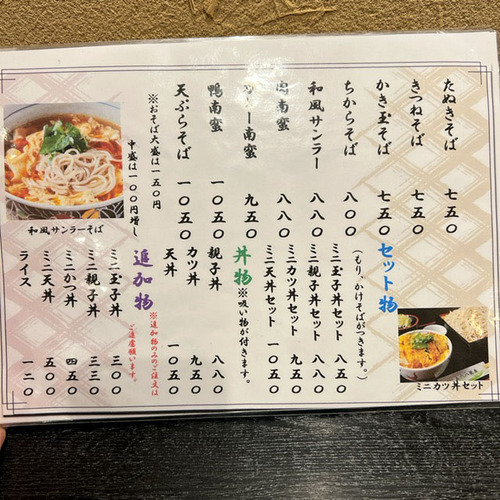 たぬきそば 七五〇
きつねそば 七五〇
かき玉そば 七五〇
ちからそば 八〇〇
和風サンラー 八八〇
肉南蛮 八八〇
カレー南蛮 九五〇
鴨南蛮 一〇五〇
天ぷらそば 一〇五〇
※おそば大盛は一五〇円
中盛は一〇〇円増し
和風サンラそば
セット物
(もり、かけそばがつきます。)
ミニ玉子丼セット 八五〇
ミニ親子丼セット 八八〇
ミニカツ丼セット 九五〇
ミニ天丼セット 一〇五〇
丼物
※吸い物が付きます。
親子丼 八八〇
カツ丼 九五〇
天丼 一〇五〇
追加物
※追加物のみのご注文は
ご遠慮願います。
ミニ玉子丼 三〇〇
ミニ親子丼 三三〇
ミニかつ丼 四五〇
ミニ天丼 五〇〇
ライス 一二〇
ミニカツ丼セット